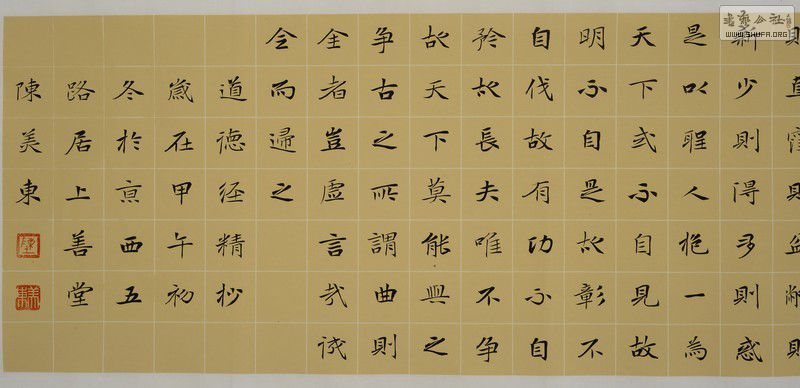 則直窪則盈敝則
新少則得多則惑
是以聖人抱一為
天下式不自見故
明不自是故彰不
自伐故有功不自
矜故長夫唯不争
故天下莫能與之
争古之所謂曲則
全者豈虛言哉誠
全而歸之
道德經精抄
歲在甲午初
冬於亰西五
路居上善堂
陳美東
WWW.SHUFA.ORG